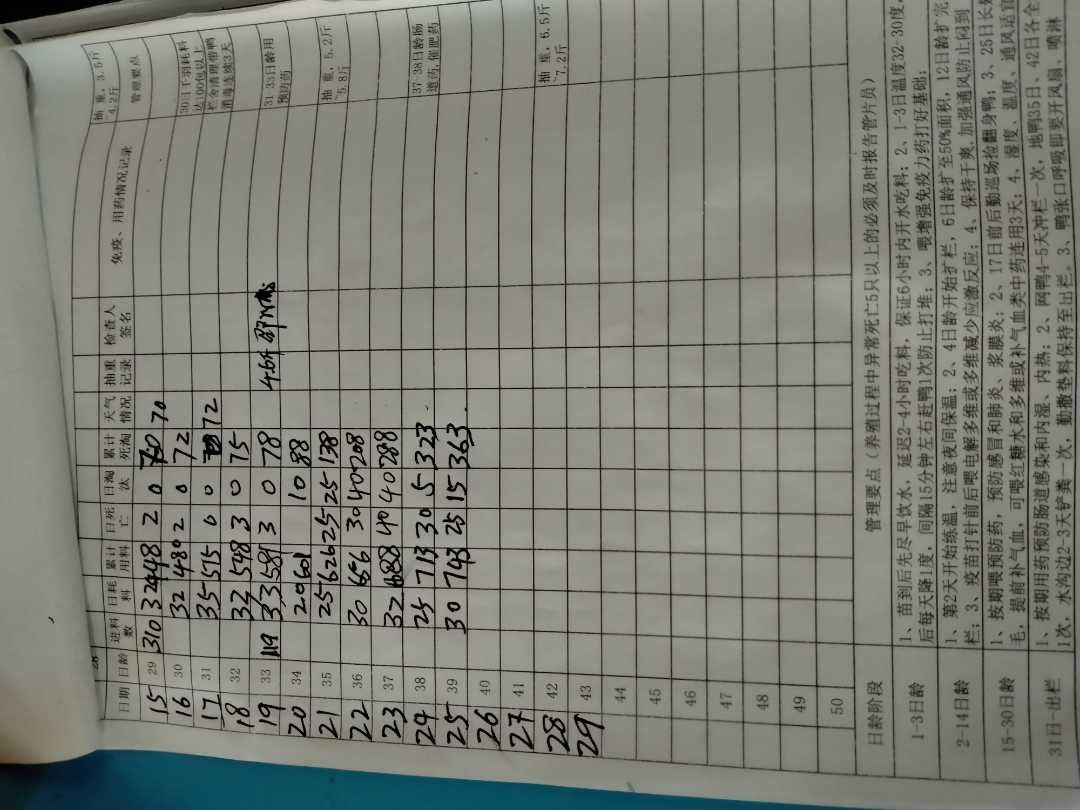 抽重，3.5斤~4.2斤
日期 日龄 进料数 日耗料 累计用料 日死亡 日淘汰 累计死淘 天气情况 抽重记录 检查人签名 免疫、用药情况记录 管理要点
15 29 310 32 448 2 0 70 70
16 30 32 480 2 0 72 30日千羽耗料达100包以上
17 31 35 515 0 0 72 栏舍清理带鸭消毒连续3天
18 32 33 548 3 0 75
19 33 119 33 581 3 0 78 4.6斤 31-33日龄用预防药
20 34 20 601 10 88
21 35 25 626 25 25 138 抽重，5.2斤~5.8斤
22 36 30 656 30 40 208
23 37 32 688 40 40 288
24 38 25 713 30 5 323 37-38日龄肠道药，催肥药
25 39 30 743 25 15 363
26 40
27 41
28 42 抽重，6.5斤~7.2斤
29 43
44
45
46
47
48
49
50
日龄阶段 管理要点（养殖过程中异常死亡5只以上的必须及时报告管片员）
1-3日龄 1、苗到后先尽早饮水，延迟2-4小时吃料，保证6小时内开水吃料；2、1-3日温度32-30度
后每天降1度，间隔15分钟左右赶鸭1次防止打堆；3、喂增强免疫力药打好基础；
2-14日龄 1、第2天开始练温，注意夜间保温；2、4日龄开始扩栏，6日龄扩至50%面积，12日龄扩完
栏；3、疫苗打针前后喂电解多维或多维减少应激反应；4、保持干爽，加强通风防止闷到
15-30日龄 1、按期喂预防药，预防感冒和肺炎、浆膜炎；2、17日前后勤巡场捡翻身鸭；3、25日长
毛，提前补气血，可喂红糖水和多维或补气血类中药连用3天；4、湿度、温度、通风适宜
31日-出栏 1、按期用药预防肠道感染和内湿、内热；2、网鸭4-5天冲栏一次，地鸭35日、42日各全
1次，水沟边2-3天铲粪一次，勤撒垫料保持至出栏。3、鸭张口呼吸即要开风扇、喷淋